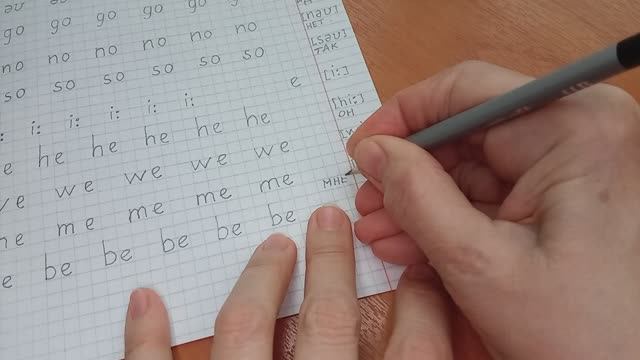 əʊ
go go go go go go [nəʊ]
НЕТ
no no no no no no [səʊ]
ТАК
so so so so so so
[i:]
e
: i: i: i: i: i: [hi:]
ОН
e he he he he he
we we we we we
МНЕ
me me me me me
e be be be be be